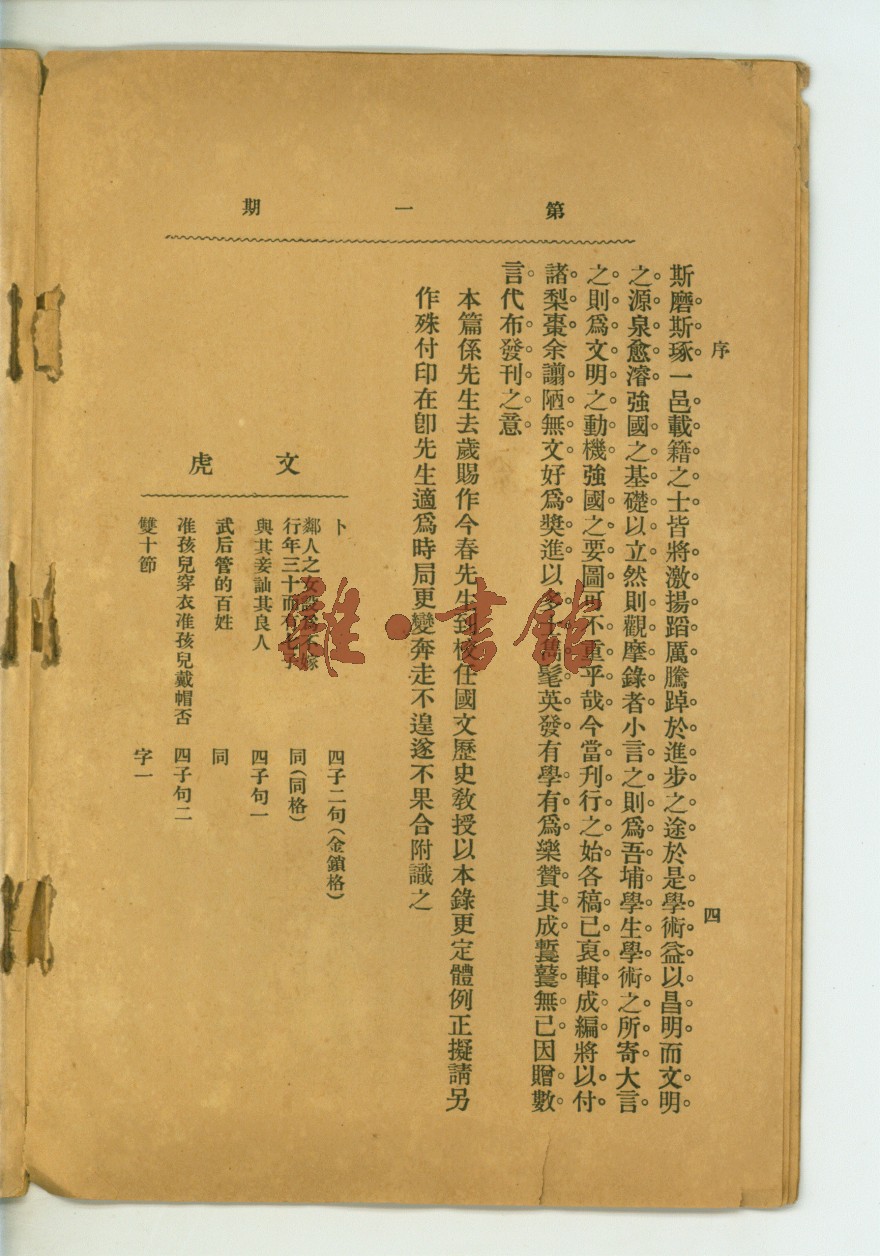 第一期
序
四
斯磨斯琢一邑載籍之士皆將激揚蹈厲騰踔於進步之途於是學術益以昌明而文明
之源泉愈濬強國之基礎以立然則觀摩錄者小言之則爲吾埔學生學術之所寄大言
之則爲文明之動機強國之要圖可不重乎哉今當刊行之始各稿已裒輯成編將以付
諸梨棗余譾陋無文好爲獎進以多士髦英發有學有爲樂贊其成無已因贈數
言代布發刊之意
本篇係先生去歲賜作今春先生到校任國文歷史教授以本錄更定體例正擬請另
作殊付印在卽先生適爲時局更變奔走不遑遂不果合附識之
文虎
卜 四子二句(金鎖格)
鄰人之女設爲不嫁
行年三十而有七子 同(同格)
與其妾訕其良人 四子句一
武后管的百姓 同
准孩兒穿衣准孩兒戴帽否 四子句二
雙十節 字一
雜·書館